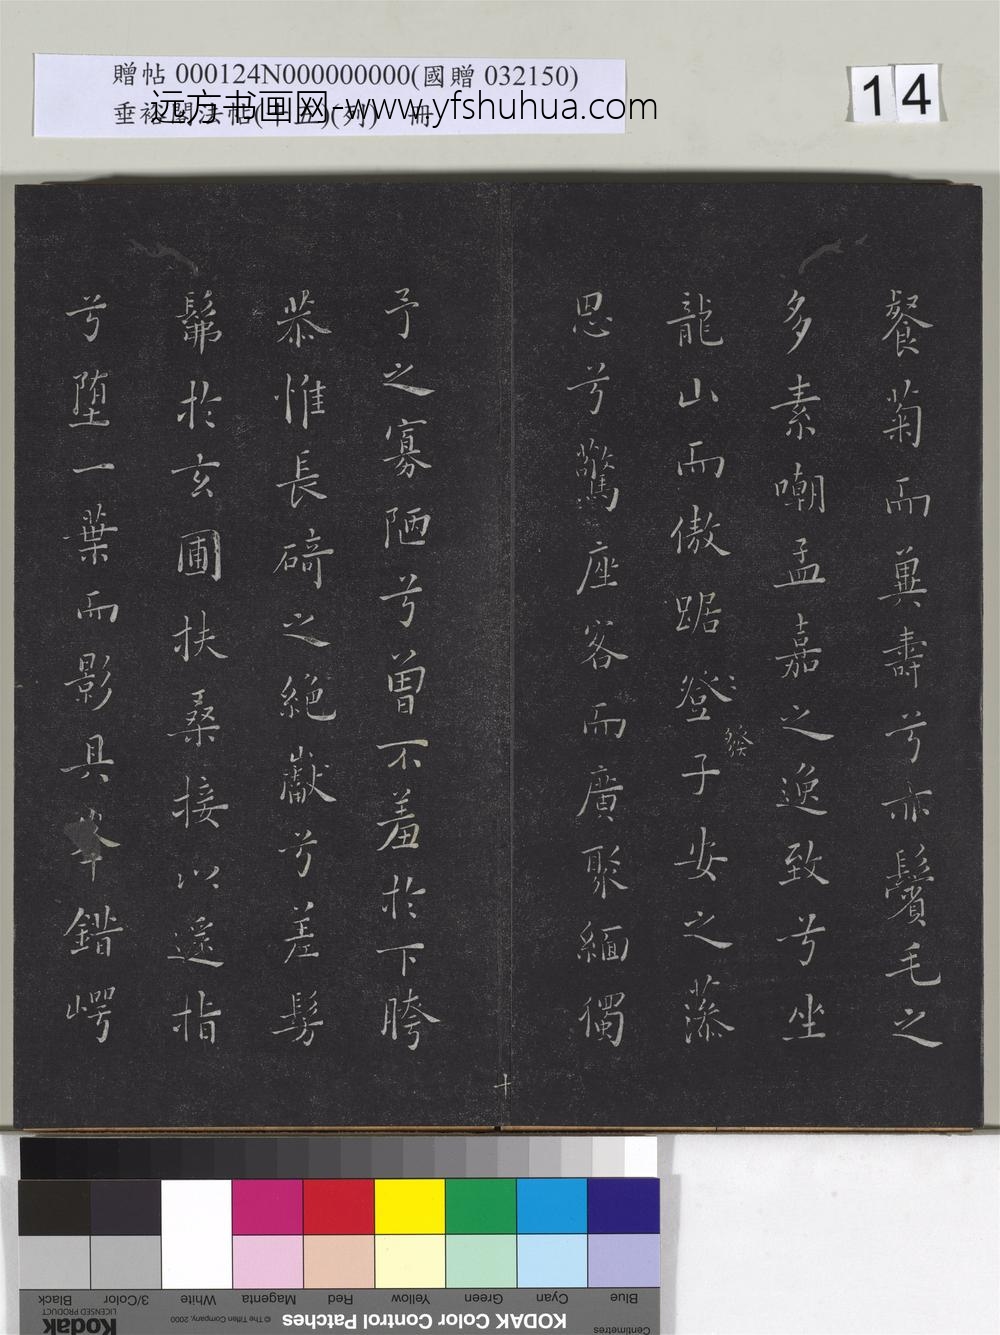 贈帖 000124N000000000(國贈 032150)
垂裕閣法帖(十五)(列) 冊
远方书画网-www.yfshuhua.com
14
餐菊而兾壽兮亦鬢毛之
多素嘲孟嘉之逸致兮坐
龍山而傲踞登子安之藻
發
思兮驚座客而廣聚緬獨
十
予之寡陋兮曾不羞於下膀
恭惟長碕之絕巘兮差髣
髴於玄圃扶桑接以遥指
兮墮一葉而影具峯錯崿
Blue
Cyan
Green
Yellow
Red
Magenta
White
3/Color
Black
Centimetres
KODAK Color Control Patches
© The Tiffen Company, 2000
Kodak
LICENSED PRODUCT